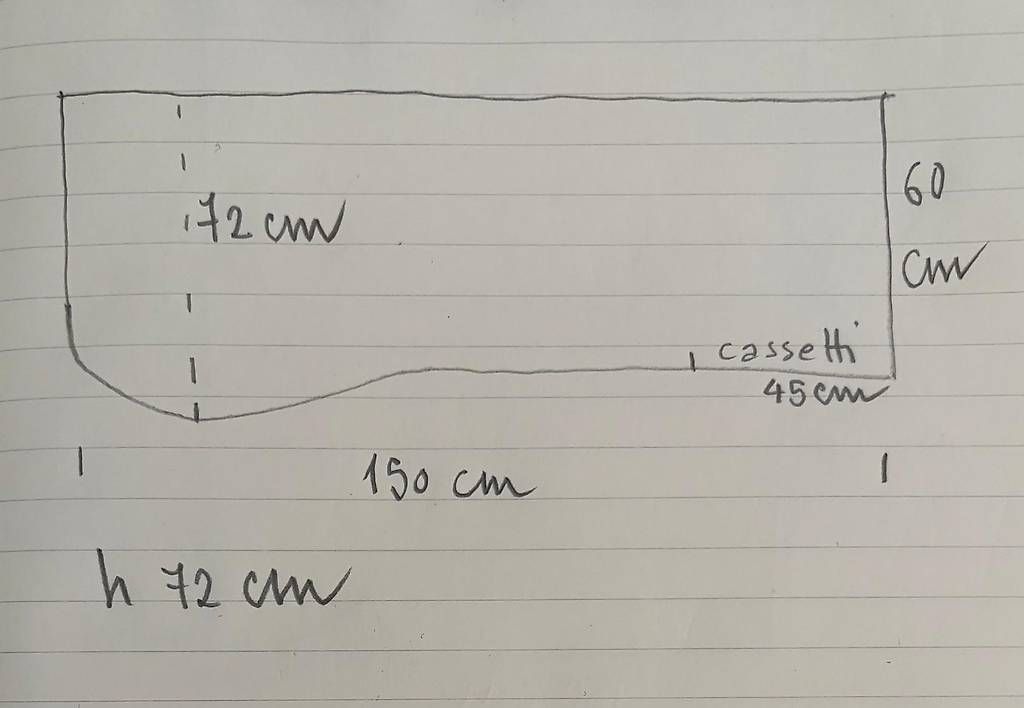 60
72 cm
cm
cassetti
45 cm
150 cm
h 72 cm